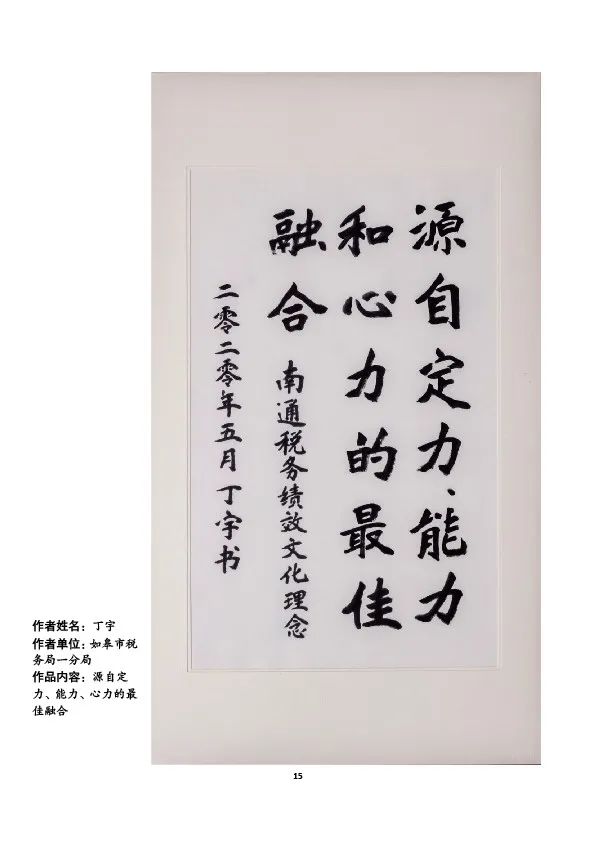 源自定力、能力
和心力的最佳
融合
南通税务绩效文化理念
二零二零年五月丁宇书
作者姓名：丁宇
作者单位：如皋市税
务局一分局
作品内容：源自定
力、能力、心力的最
佳融合
15